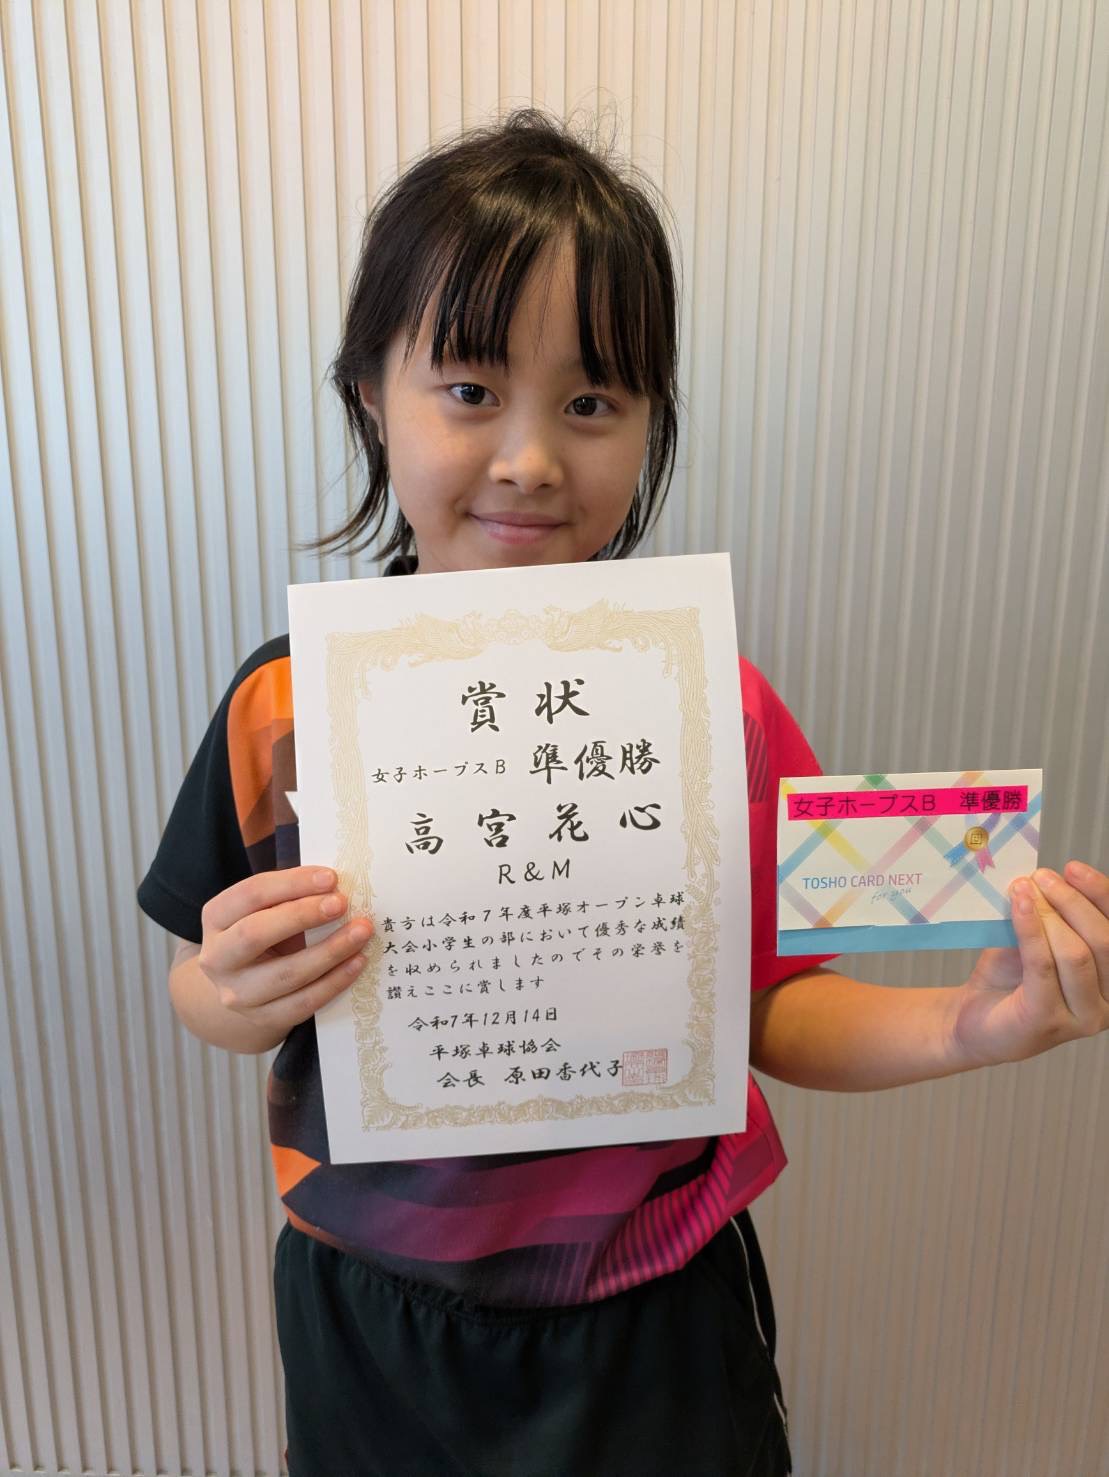 賞状
女子ホープスB 準優勝
高宮花心
R&M
貴方は令和7年度平塚オープン卓球
大会小学生の部において優秀な成績
を収められましたのでその栄誉を
讃えここに賞します
令和7年12月14日
平塚卓球協会
会長 原田香代子
女子ホープスB 準優勝
TOSHO CARD NEXT
for you